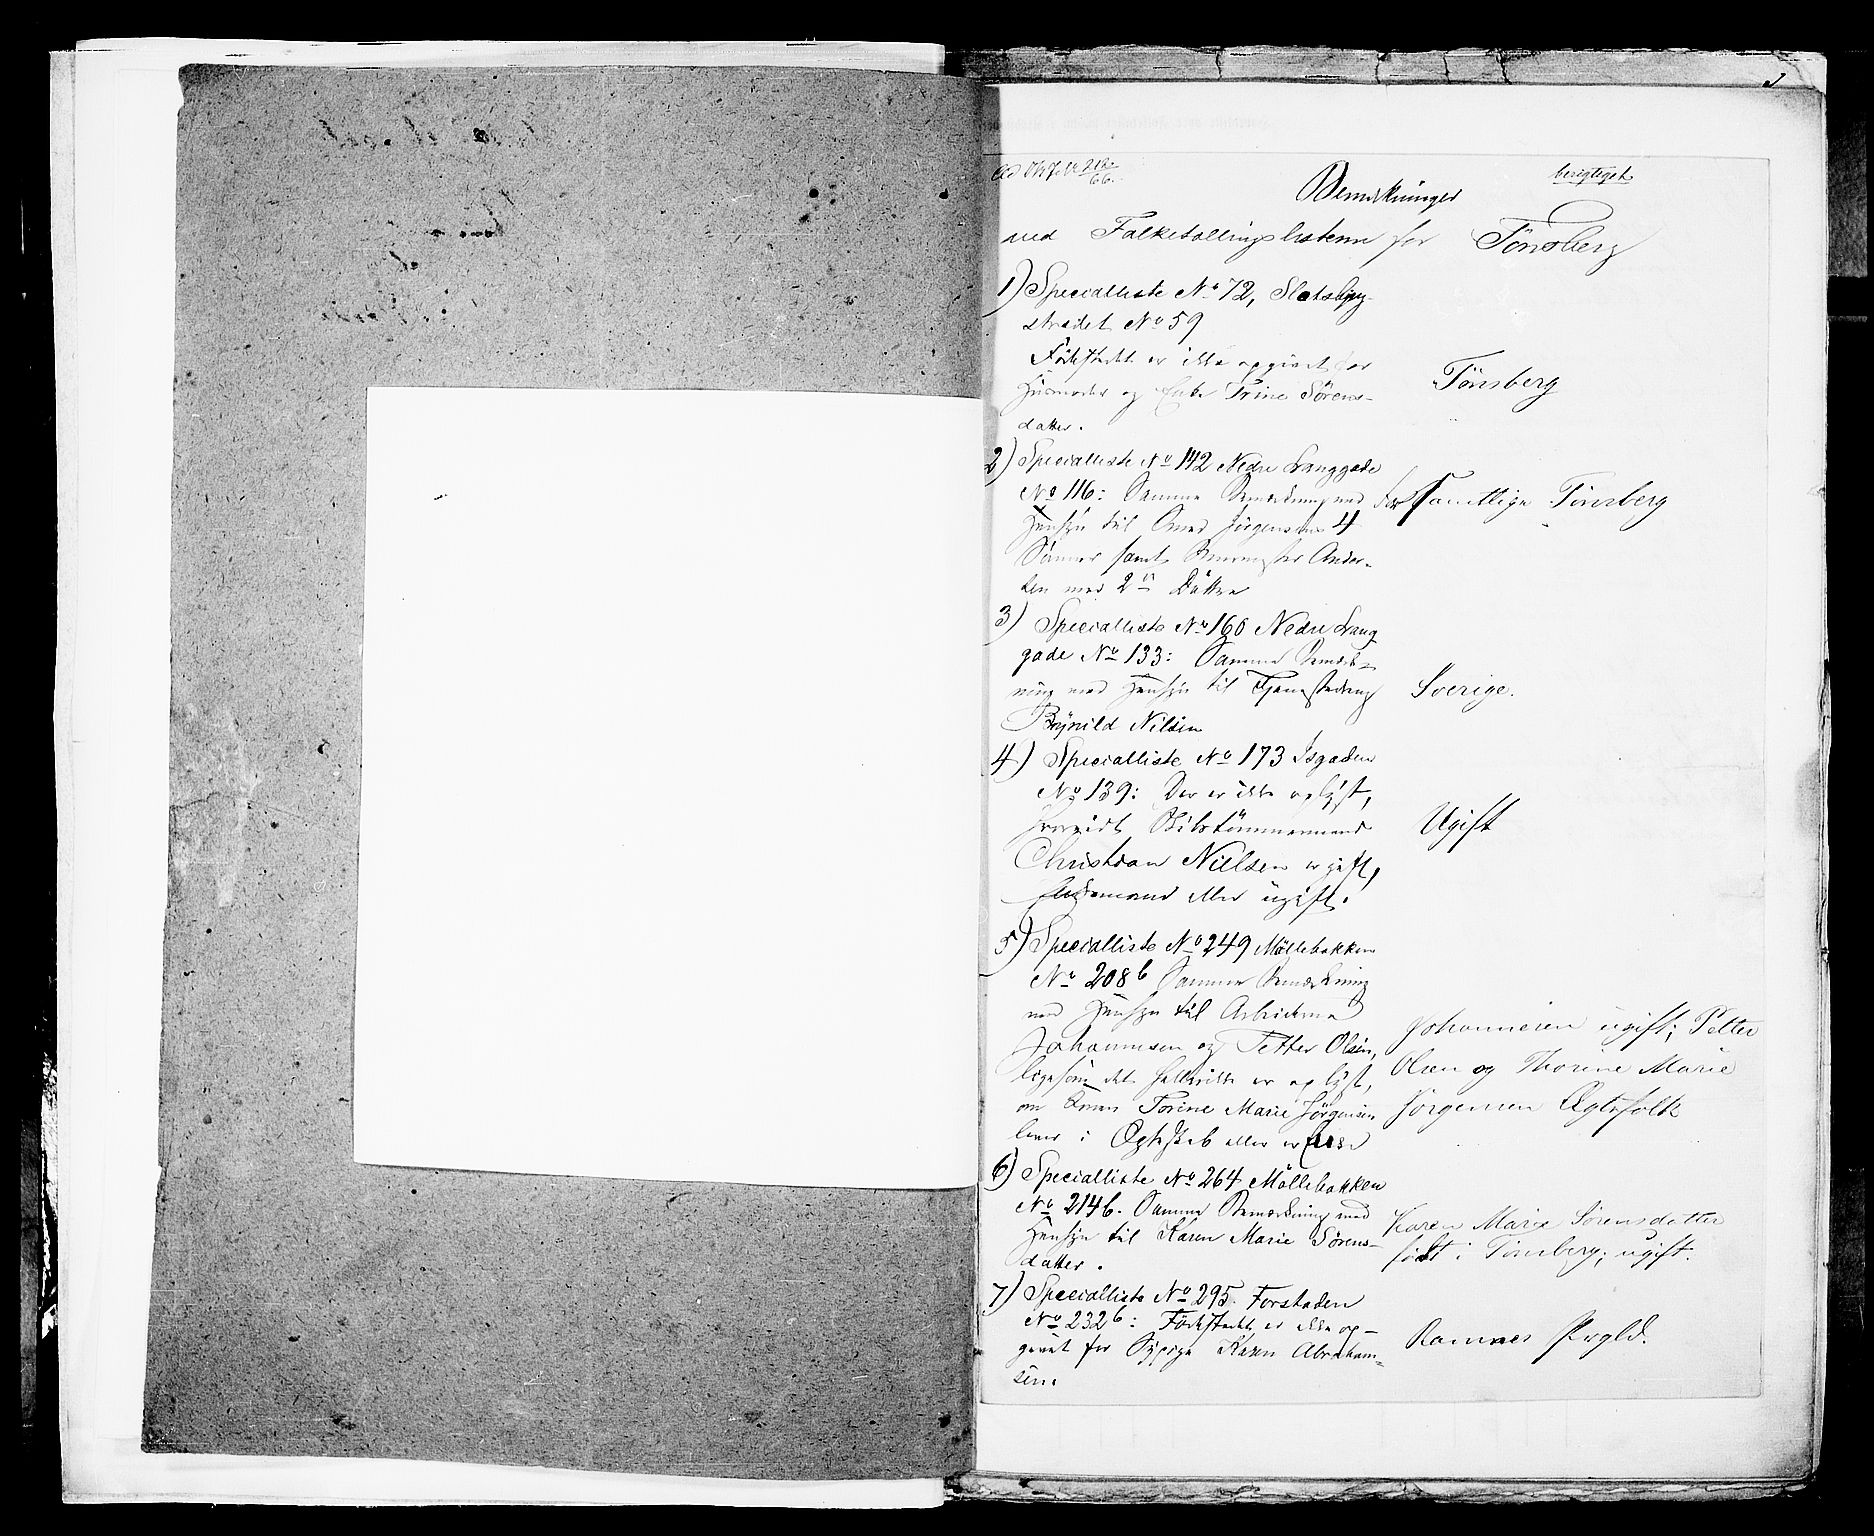 212/66
Bemærkninger
berigtiget
ved Folketællingslisterne for Tönsberg
1) Specialliste No 72, Slotsbjerg-
strædet No 59
Födestedet er ikke opgivet for
Huusmoder og Enke Trine Sörens-
datter.
Tönsberg
2) Specialliste No 142 Nedre Langgade
No 116: Samme Bemærkning med
Hensyn til Jörgensens 4
Sönner samt Ander-
sen med 2de Döttre
for samtlige Tönsberg
3) Specialliste No 160 Nedre Lang
gade No 133: Samme Bemærk-
ning med Hensyn til Tjenestedreng
Brynild Nilsen
Sverige.
4) Specialliste No 173 Isgaden
No 139: Der er ikke oplyst,
hvorvidt Skibstömmermand
Christian Nielsen er gift,
Enkemand eller ugift.
Ugift
5) Specialliste No 249 Möllebakken
No 208b Samme Bemærkning
med Hensyn til Arbeiderne
Johannesen og Petter Olsen,
ligesom det hellerikke er oplyst,
om Konen Torine Marie Jörgensen
lever i Ægteskab eller er Enke
Johannesen ugift; Petter
Olsen og Thorine Marie
Jörgensen Ægtefolk
6) Specialliste No 264 Möllebakken
No 214b. Samme Bemærkning med
Hensyn til Karen Marie Sörens-
datter.
Karen Marie Sörensdatter
födt i Tönsberg; ugift.
7) Specialliste No 295. Forstaden
No 232b: Födestedet er ikke op-
givet for Sypige Karen Abraham-
sen.
Ramnes Prgld.